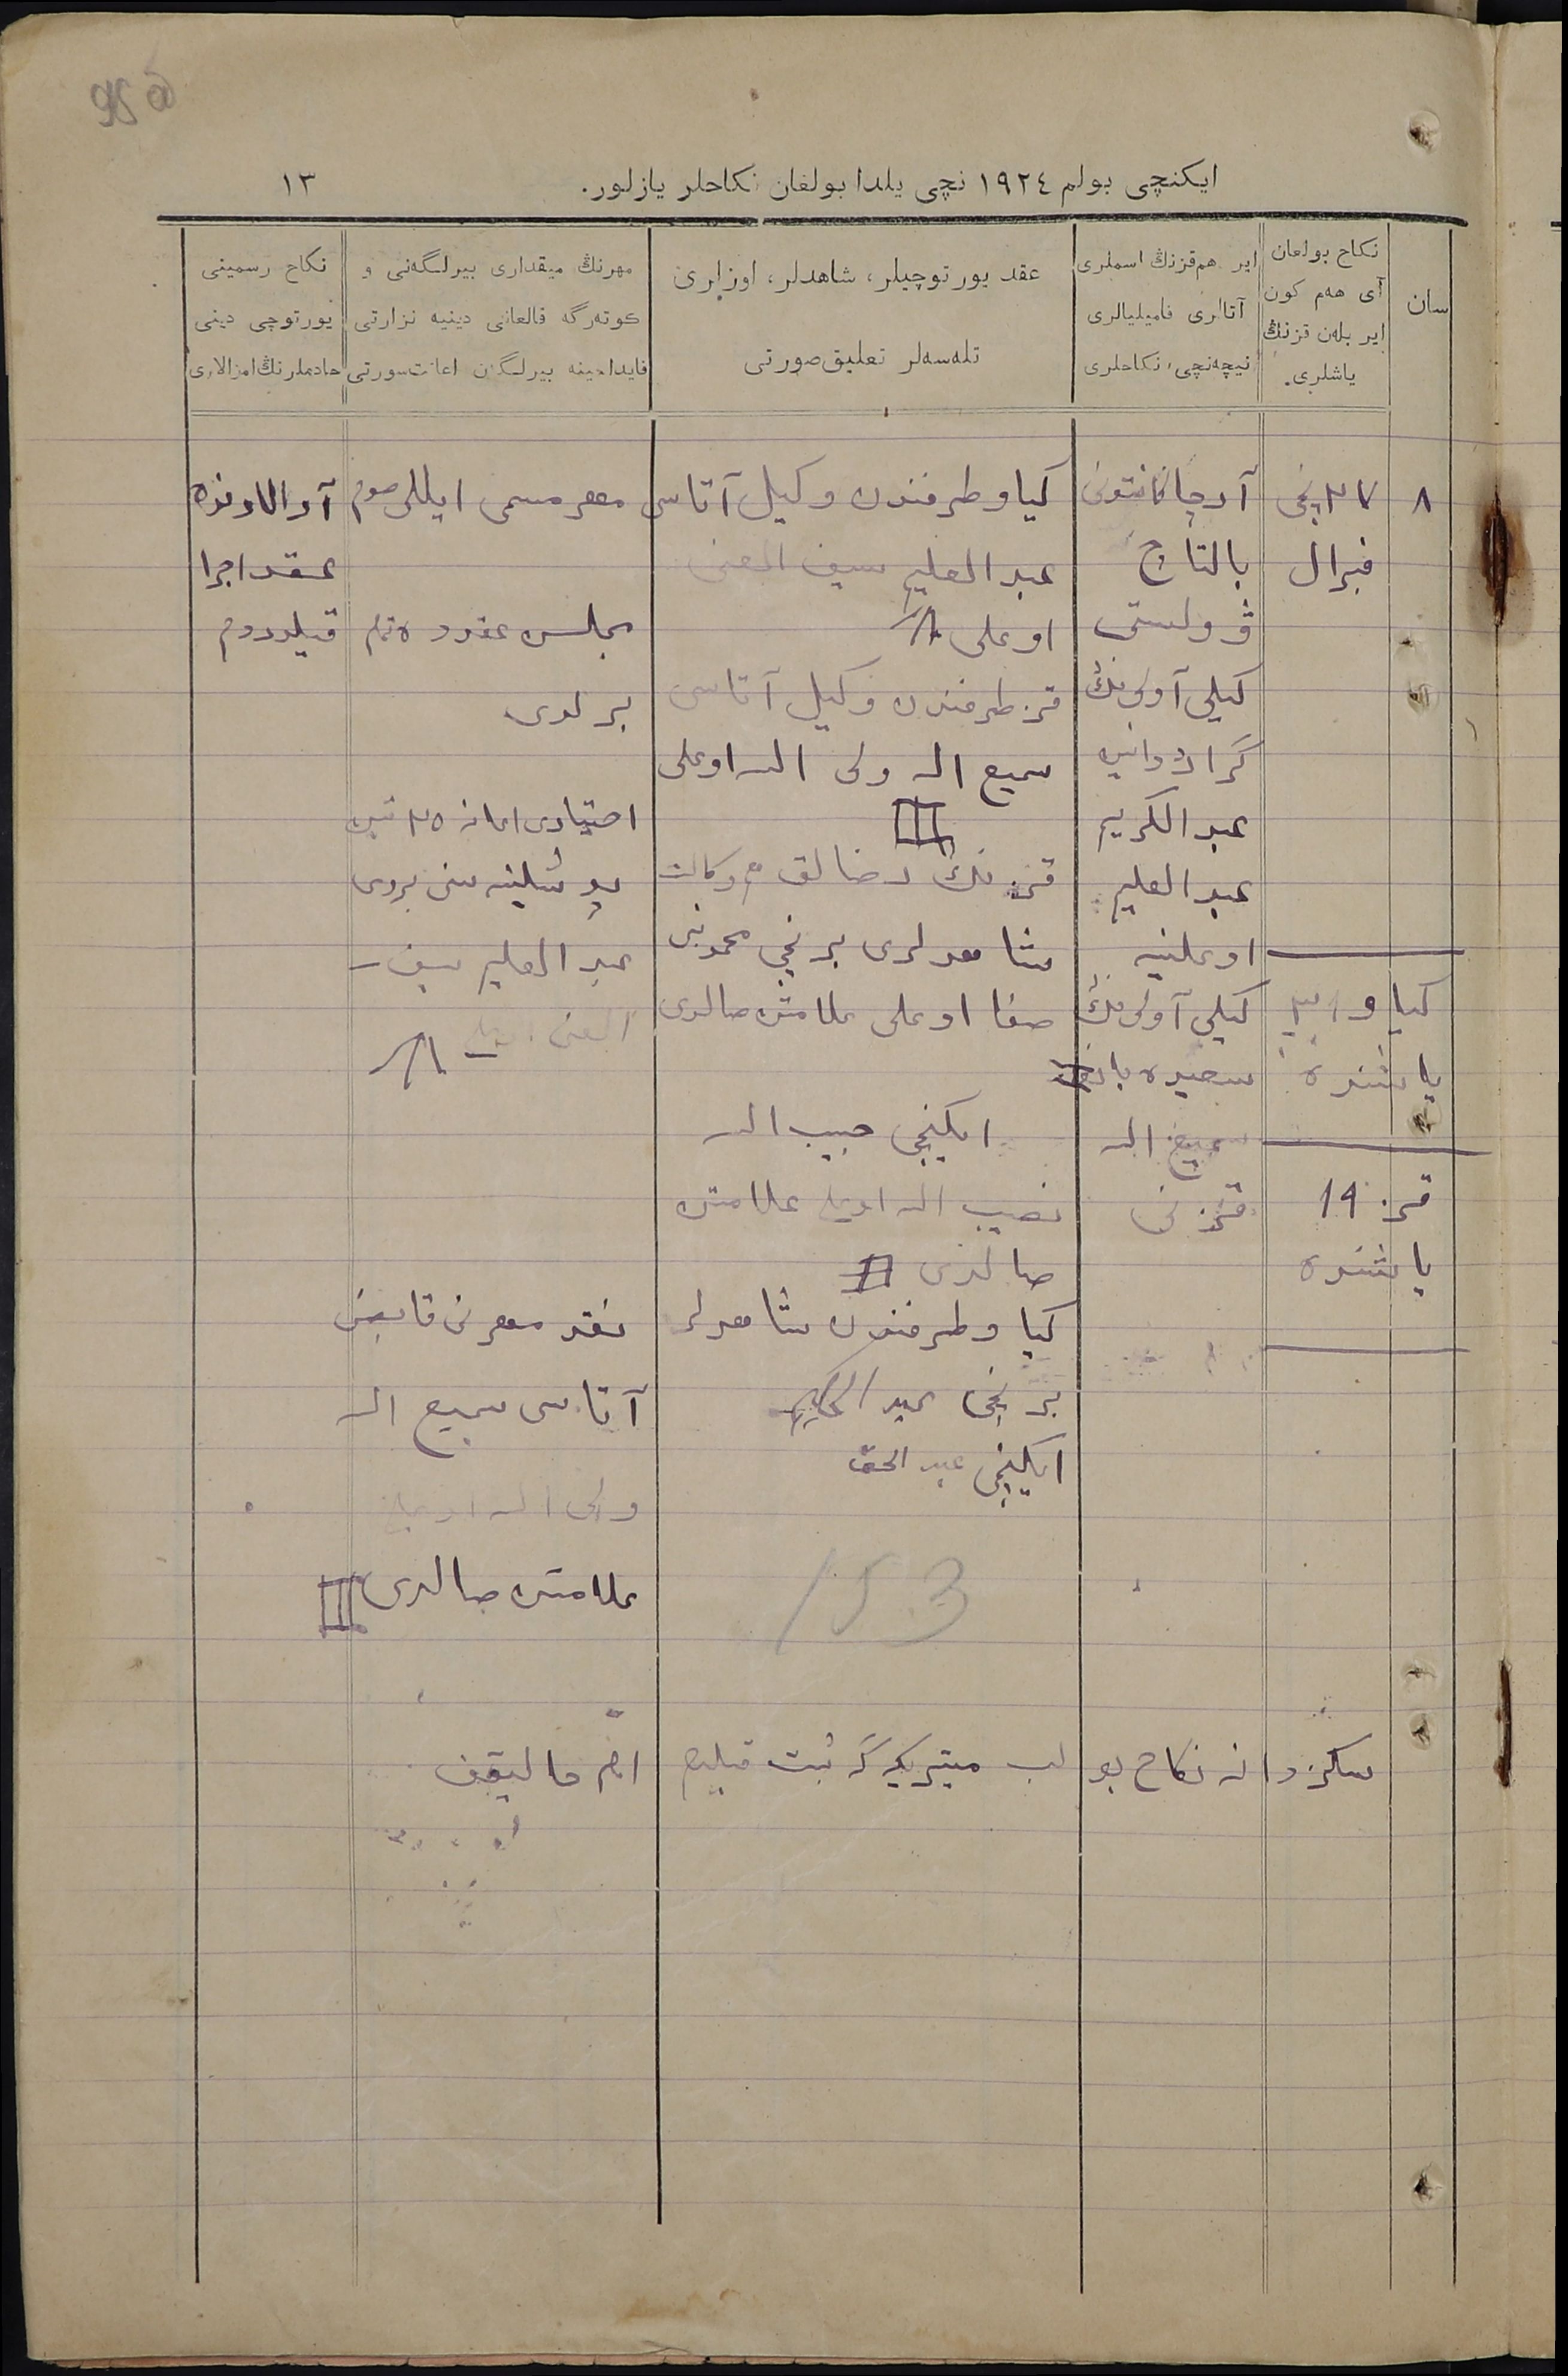 ایکنچی بولم ١٩٢٤ نچی یلدا بولغان نکاحلر یازلور.
١٣
سان
نکاح بولغان
آی هەم کون
ایر بلەن قزنڭ
یاشلری.
ایر هم قزنڭ اسملری
آتالری فامیلیالری
نیچەنچی نکاحلری
عقد یورتوچیلر، شاهدلر، اوزلری
تلەسەلر تعلیق صورتی
مهرنڭ میقداری بیرلگەنی و
کوتەرگە قالغانی دینیه نزارتی
فایداسینه بیرلگن اعانت سورتی
نکاح رسمینی
یورتوچی دینی
خادملرنڭ امزالاری
٨
٢٧ نچی
فبرال
کیاو
یاشنده
قز 19
یاشنده
آرچا کانتونی
بالتاچ
ڤولستی
کیلی آولی نڭ
عبد الکریم
عبد العلیم
اوغلینه
کیلی آولی نڭ
سعیده بانو
سمیع الله
قزنی
کیاو طرفندن وکیل آتاسی
عبد العلیم سیف الغنی
اوغلی
قز طرفندن وکیل آتاسی
سمیع الله ولی الله اوغلی
قزنڭ رضالق هم وکالت
شاهدلری برنچی محمدنبی
صفا اوغلی علامتن صالدی
ایکنچی حبیب الله
نصیب الله اوغلی علامتن
صالدی
کیاو طرفندن شاهدلر
برنچی عبد الحکیم
ایکنچی عبد الحق
مهر مسمی ایللی صوم
مجلس عقدده تمام
برلدی
اختیاری اعانه ٢٥ تین
عبد العلیم سیف
الغنی
نقد مهرنی قابض
آتاسی سمیع الله
ولی الله اوغلی
علامتن صالدی
آوالاوندە
عقد اجرا
قیلدردم
153
سکز دانه نکاح بولب میتریکه گه ثبت قیلیم امام